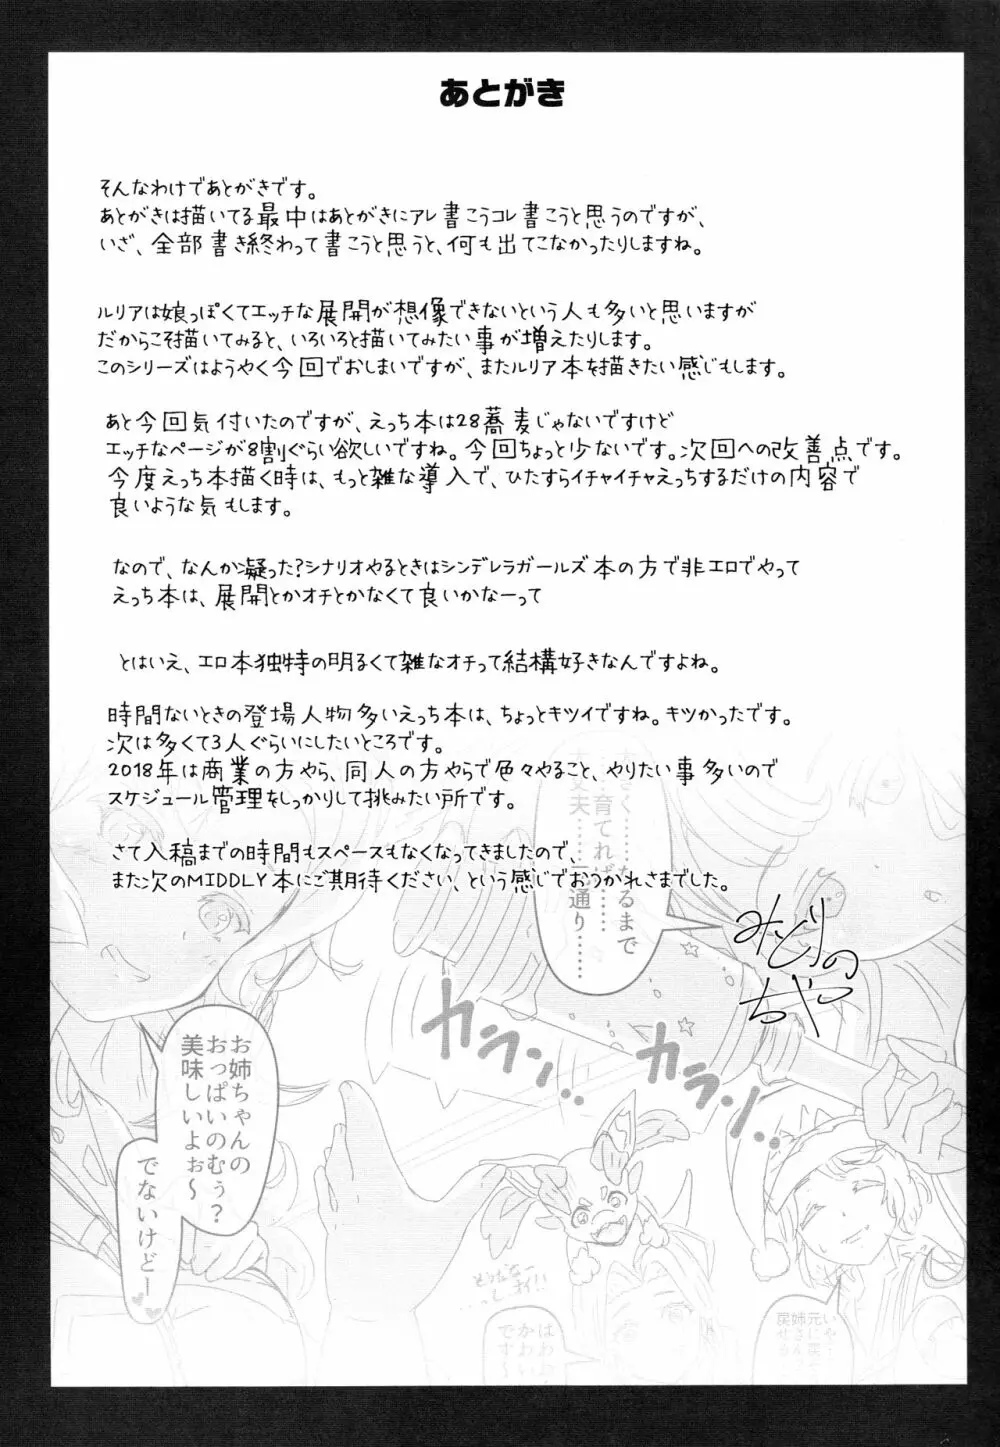 あとがき
そんなわけであとがきです。
あとがきは描いてる最中はあとがきにアレ書こうコレ書こうと思うのですが、
いざ、全部書き終わって書こうと思うと、何も出てこなかったりしますね。
ルリアは娘っぽくてエッチな展開が想像できないという人も多いと思いますが
だからこそ描いてみると、いろいろと描いてみたい事が増えたりします。
このシリーズはようやく今回でおしまいですが、またルリア本を描きたい感じもします。
あと今回気付いたのですが、えっち本は28蕎麦じゃないですけど
エッチなページが8割ぐらい欲しいですね。今回ちょっと少ないです。次回への改善点です。
今度えっち本描く時は、もっと雑な導入で、ひたすらイチャイチャえっちするだけの内容で
良いような気もします。
なので、なんか凝った?シナリオやるときはシンデレラガールズ本の方で非エロでやって
えっち本は、展開とかオチとかなくて良いかなーって
とはいえ、エロ本独特の明るくて雑なオチって結構好きなんですよね。
時間ないときの登場人物多いえっち本は、ちょっとキツイですね。キツかったです。
次は多くて3人ぐらいにしたいところです。
2018年は商業の方やら、同人の方やらで色々やること、やりたい事多いので
スケジュール管理をしっかりして挑みたい所です。
さて入稿までの時間もスペースもなくなってきましたので、
また次のMIDDLY本にご期待ください、という感じでおつかれさまでした。
みどりの
ちや
カラン
カラン